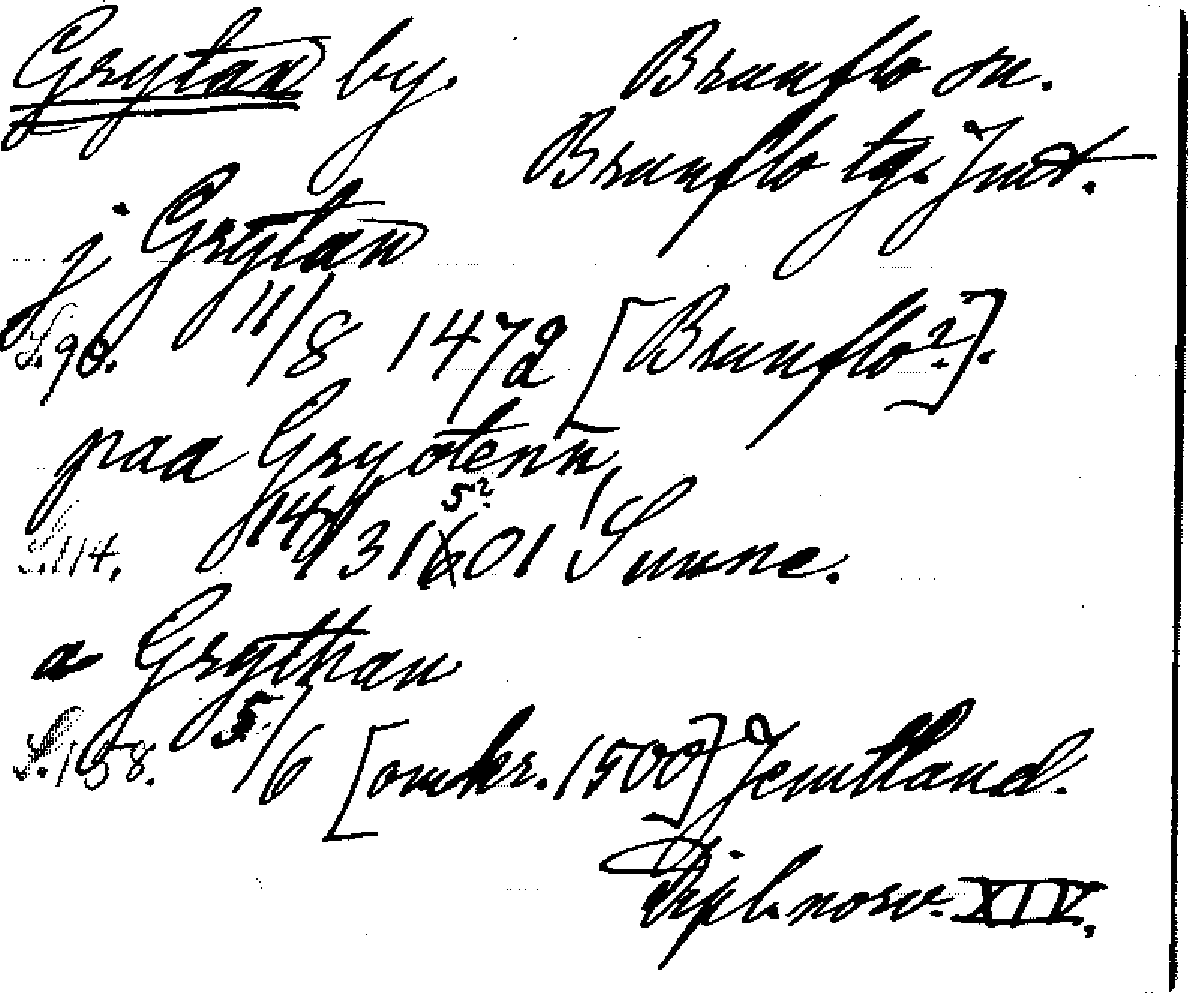 Grytan by. Brunflo sn.
Brunflo tg. Jmt.
j Grytan
S. 96. 11/8 1472 [Brunflo?].
paa Gryotenn,
S. 114. 14/3 1601 Sunne.
5?
a Grythan
S. 158. 5/6 [omkr. 1500] Jemtland.
Dipl. norv. XIV.